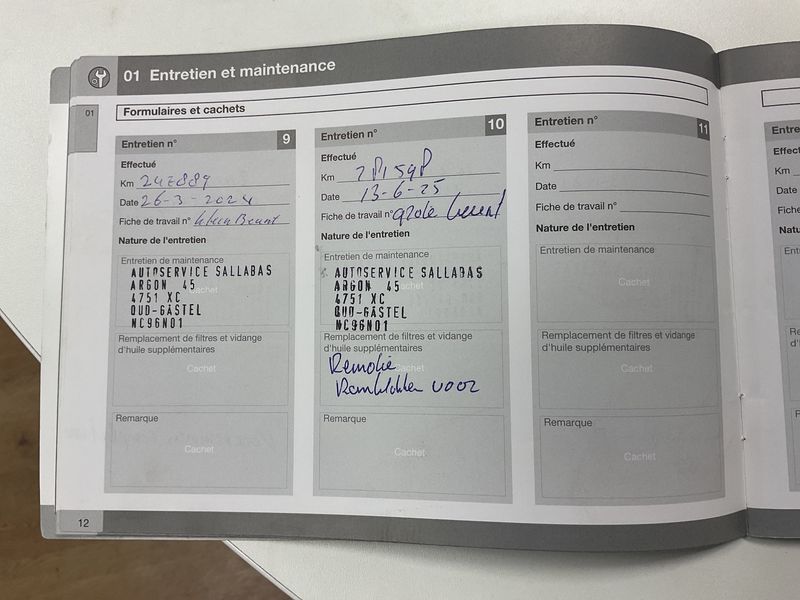 01 Entretien et maintenance
01
Formulaires et cachets
Entretien n° 9
Effectué
Km 247889
Date 26-3-2024
Fiche de travail n° Beurt
Nature de l'entretien
Entretien de maintenance
Cachet
AUTOSERVICE SALLABAS
ARGON 45
4751 XC
OUD-GASTEL
NC96N01
Remplacement de filtres et vidange
d'huile supplémentaires
Cachet
Remarque
Cachet
12
Entretien n° 10
Effectué
Km
Date 13-6-25
Fiche de travail n° grote beurt
Nature de l'entretien
Entretien de maintenance
Cachet
AUTOSERVICE SALLABAS
ARGON 45
4751 XC
OUD-GASTEL
NC96N01
Remplacement de filtres et vidange
d'huile supplémentaires
Cachet
Remolie
Remblokken voor
Remarque
Cachet
Entretien n° 11
Effectué
Km
Date
Fiche de travail n°
Nature de l'entretien
Entretien de maintenance
Cachet
Remplacement de filtres et vidange
d'huile supplémentaires
Cachet
Remarque
Cachet
Entre
Effectué
Km
Date
Fiche de
Nature d
Entretien
Rempla
d'huile
Rem